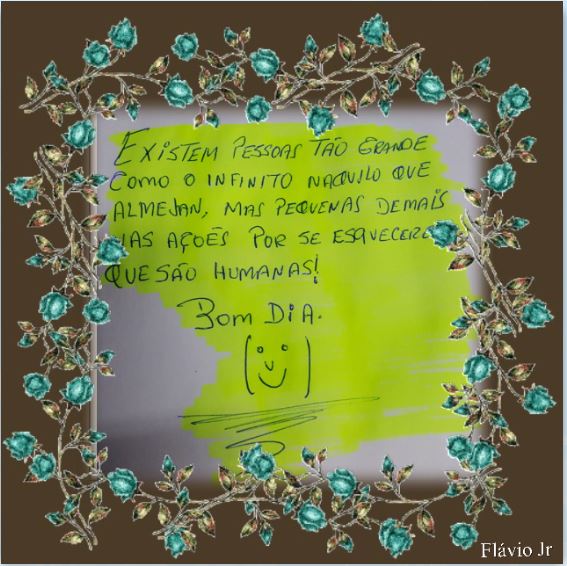 EXISTEM PESSOAS TÃO GRANDE
COMO O INFINITO NAQUILO QUE
ALMEJAN, MAS PEQUENAS DEMAIS
AÇOẼS POR SE
QUE SÃO HUMANAS!
BOM DIA.
Flávio Jr